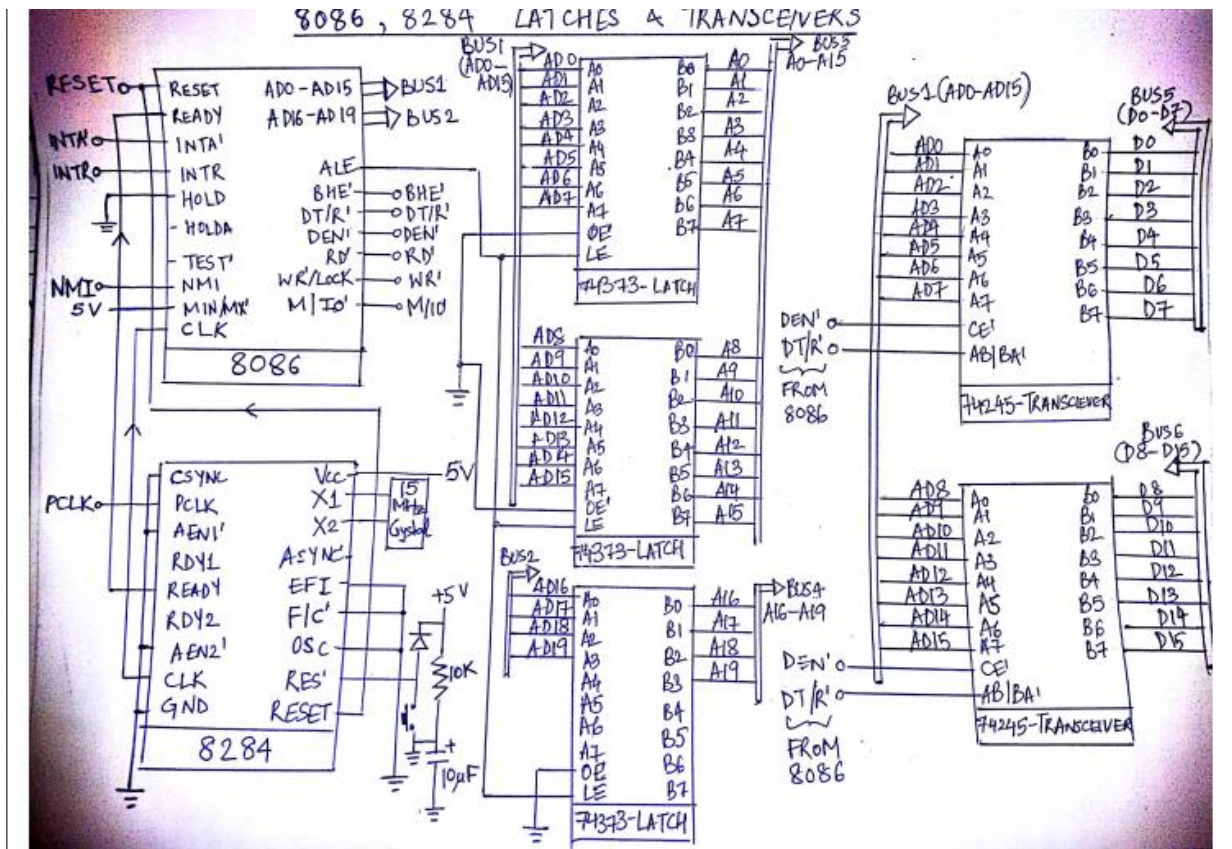 8086, 8284 LATCHES & TRANSCEIVERS
RESET
INTA'
INTR
NMI
5V
RESET
READY
INTA'
INTR
HOLD
HOLDA
TEST'
NMI
MIN/MX'
CLK
AD0-AD15
AD16-AD19
ALE
BHE'
DT/R'
DEN'
RD'
WR'/LOCK
M/IO'
BUS1
BUS2
BHE'
DT/R'
DEN'
RD'
WR'
M/IO'
8086
PCLK
CSYNC
PCLK
AEN1'
RDY1
READY
RDY2
AEN2'
CLK
GND
Vcc
X1
X2
ASYNC
EFI
F/C'
OSC
RES'
RESET
8284
5V
15
MHz
Crystal
+5V
10K
+
10µF
BUS1
(AD0-
AD15)
AD0
AD1
AD2
AD3
AD4
AD5
AD6
AD7
A0
A1
A2
A3
A4
A5
A6
A7
OE'
LE
B0
B1
B2
B3
B4
B5
B6
B7
A0
A1
A2
A3
A4
A5
A6
A7
74373-LATCH
BUS3
A0-A15
AD8
AD9
AD10
AD11
AD12
AD13
AD14
AD15
A0
A1
A2
A3
A4
A5
A6
A7
OE'
LE
B0
B1
B2
B3
B4
B5
B6
B7
A8
A9
A10
A11
A12
A13
A14
A15
74373-LATCH
BUS2
AD16
AD17
AD18
AD19
A0
A1
A2
A3
A4
A5
A6
A7
OE
LE
B0
B1
B2
B3
B4
B5
B6
B7
A16
A17
A18
A19
74373-LATCH
BUS4
A16-A19
BUS1(AD0-AD15)
BUS5
(D0-D7)
AD0
AD1
AD2
AD3
AD4
AD5
AD6
AD7
A0
A1
A2
A3
A4
A5
A6
A7
CE'
AB/BA'
B0
B1
B2
B3
B4
B5
B6
B7
D0
D1
D2
D3
D4
D5
D6
D7
DEN'
DT/R'
FROM
8086
74245-TRANSCIEVER
BUS6
(D8-D15)
AD8
AD9
AD10
AD11
AD12
AD13
AD14
AD15
A0
A1
A2
A3
A4
A5
A6
A7
CE'
AB/BA'
B0
B1
B2
B3
B4
B5
B6
B7
D8
D9
D10
D11
D12
D13
D14
D15
DEN'
DT/R'
FROM
8086
74245-TRANSCEIVER